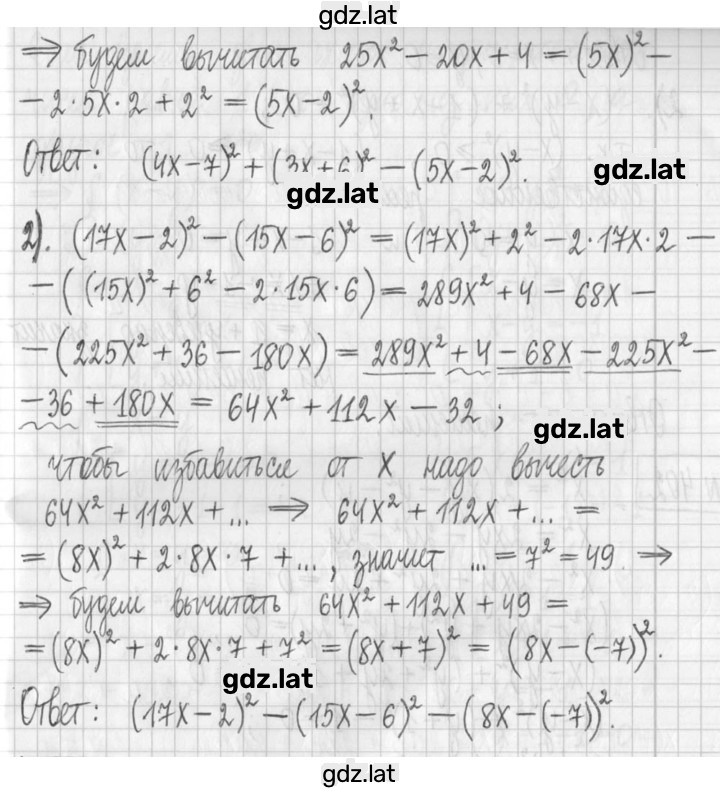 gdz.lat
⇒ будем вычитать 25x² − 20x + 4 = (5x)² −
− 2·5x·2 + 2² = (5x−2)².
Ответ: (4x−7)² + (3x+6)² − (5x−2)².
gdz.lat
gdz.lat
2). (17x−2)² − (15x−6)² = (17x)² + 2² − 2·17x·2 −
− ((15x)² + 6² − 2·15x·6) = 289x² + 4 − 68x −
− (225x² + 36 − 180x) = 289x² + 4 − 68x − 225x² −
− 36 + 180x = 64x² + 112x − 32 ;
gdz.lat
чтобы избавиться от x надо вычесть
64x² + 112x + ... ⇒ 64x² + 112x + ... =
= (8x)² + 2·8x·7 + ... , значит ... = 7² = 49 ⇒
⇒ будем вычитать 64x² + 112x + 49 =
= (8x)² + 2·8x·7 + 7² = (8x+7)² = (8x−(−7))².
gdz.lat
Ответ: (17x−2)² − (15x−6)² − (8x−(−7))².
gdz.lat